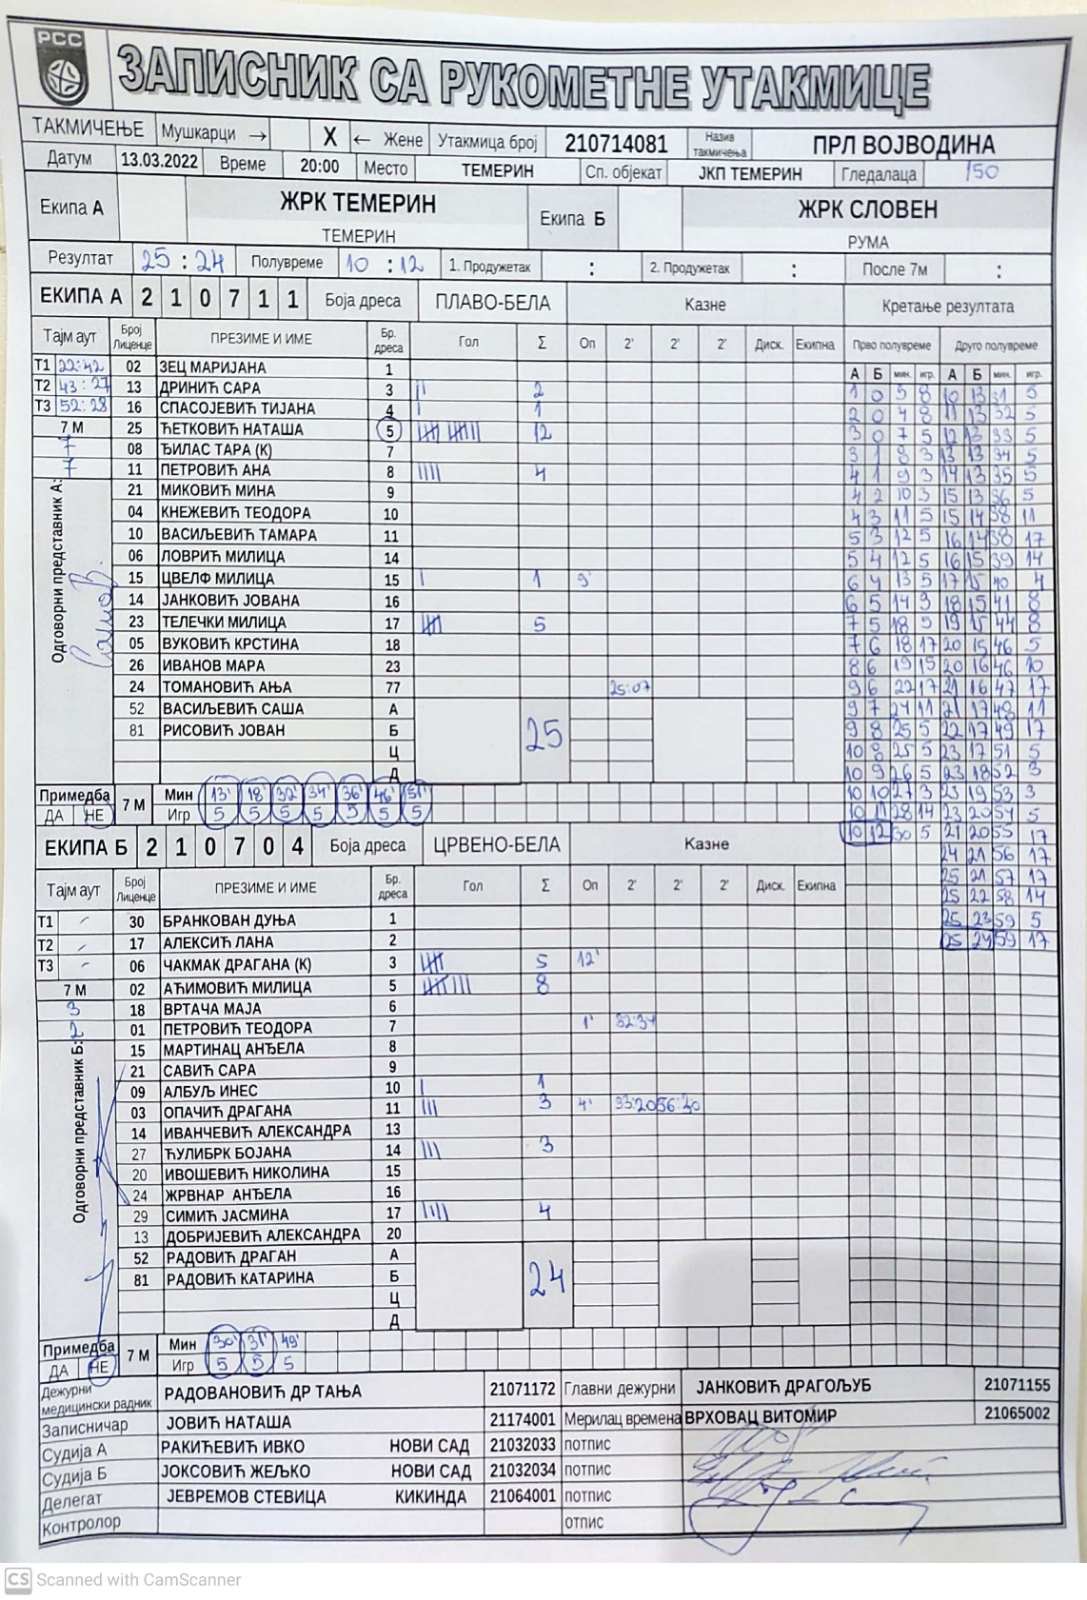 РСС
ЗАПИСНИК СА РУКОМЕТНЕ УТАКМИЦЕ
ТАКМИЧЕЊЕ Мушкарци → X ← Жене Утакмица број 210714081 Назив такмичења ПРЛ ВОЈВОДИНА
Датум 13.03.2022 Време 20:00 Место ТЕМЕРИН Сп. објекат ЈКП ТЕМЕРИН Гледалаца 150
Екипа А ЖРК ТЕМЕРИН Екипа Б ЖРК СЛОВЕН
ТЕМЕРИН РУМА
Резултат 25 : 24 Полувреме 10 : 12 1. Продужетак : 2. Продужетак : После 7м :
ЕКИПА А 2 1 0 7 1 1 Боја дреса ПЛАВО-БЕЛА Казне Кретање резултата
Тајм аут Број Лиценце ПРЕЗИМЕ И ИМЕ Бр. дреса Гол Σ Оп 2' 2' 2' Диск. Екипна Прво полувреме Друго полувреме
А Б мин. игр. А Б мин. игр.
Т1 22:42 02 ЗЕЦ МАРИЈАНА 1
Т2 43:27 13 ДРИНИЋ САРА 3 2 1 0 3 8 10 13 31 5
Т3 52:28 16 СПАСОЈЕВИЋ ТИЈАНА 4 1 2 0 4 8 11 13 32 5
7 М 25 ЋЕТКОВИЋ НАТАША 5 12 3 0 7 5 12 13 33 5
7 08 ЂИЛАС ТАРА (К) 7 3 1 8 3 13 13 34 5
7 11 ПЕТРОВИЋ АНА 8 4 4 1 9 3 14 13 35 5
21 МИКОВИЋ МИНА 9 4 2 10 3 15 13 36 5
04 КНЕЖЕВИЋ ТЕОДОРА 10 4 3 11 5 15 14 38 11
10 ВАСИЉЕВИЋ ТАМАРА 11 5 3 12 5 16 14 38 17
06 ЛОВРИЋ МИЛИЦА 14 5 4 12 5 16 15 39 14
15 ЦВЕЛФ МИЛИЦА 15 1 9' 6 4 13 5 17 15 40 4
14 ЈАНКОВИЋ ЈОВАНА 16 6 5 14 3 18 15 41 8
23 ТЕЛЕЧКИ МИЛИЦА 17 5 7 5 18 5 19 15 44 8
05 ВУКОВИЋ КРСТИНА 18 7 6 18 17 20 15 46 5
26 ИВАНОВ МАРА 23 8 6 19 15 20 16 46 10
24 ТОМАНОВИЋ АЊА 77 25:07 9 6 22 17 21 16 47 17
52 ВАСИЉЕВИЋ САША А 9 7 24 11 21 17 48 11
81 РИСОВИЋ ЈОВАН Б 25 9 8 25 5 22 17 49 17
Ц 10 8 25 5 23 17 51 5
Д 10 9 26 5 23 18 52 3
Одговорни представник А:
Примедба 7 М Мин 13' 18' 32' 34' 36' 46' 51' 10 10 27 3 23 19 53 3
ДА НЕ Игр 5 5 5 5 5 5 5 10 11 28 14 23 20 54 5
ЕКИПА Б 2 1 0 7 0 4 Боја дреса ЦРВЕНО-БЕЛА Казне 10 12 30 5 21 20 55 17
24 21 56 17
Тајм аут Број Лиценце ПРЕЗИМЕ И ИМЕ Бр. дреса Гол Σ Оп 2' 2' 2' Диск. Екипна 25 21 57 17
25 22 58 14
Т1 - 30 БРАНКОВАН ДУЊА 1 25 23 59 5
Т2 - 17 АЛЕКСИЋ ЛАНА 2 25 24 59 17
Т3 - 06 ЧАКМАК ДРАГАНА (К) 3 5 12'
7 М 02 АЋИМОВИЋ МИЛИЦА 5 8
3 18 ВРТАЧА МАЈА 6
2 01 ПЕТРОВИЋ ТЕОДОРА 7 1' 32:34
15 МАРТИНАЦ АНЂЕЛА 8
21 САВИЋ САРА 9
09 АЛБУЉ ИНЕС 10 1
03 ОПАЧИЋ ДРАГАНА 11 3 4' 33:20 56:30
14 ИВАНЧЕВИЋ АЛЕКСАНДРА 13
27 ЋУЛИБРК БОЈАНА 14 3
20 ИВОШЕВИЋ НИКОЛИНА 15
24 ЖРВНАР АНЂЕЛА 16
29 СИМИЋ ЈАСМИНА 17 4
13 ДОБРИЈЕВИЋ АЛЕКСАНДРА 20
52 РАДОВИЋ ДРАГАН А
81 РАДОВИЋ КАТАРИНА Б 24
Ц
Д
Одговорни представник Б:
Примедба 7 М Мин 30' 31' 49'
ДА НЕ Игр 5 5 5
Дежурни медицински радник РАДОВАНОВИЋ ДР ТАЊА 21071172 Главни дежурни ЈАНКОВИЋ ДРАГОЉУБ 21071155
Записничар ЈОВИЋ НАТАША 21174001 Мерилац времена ВРХОВАЦ ВИТОМИР 21065002
Судија А РАКИЋЕВИЋ ИВКО НОВИ САД 21032033 потпис
Судија Б ЈОКСОВИЋ ЖЕЉКО НОВИ САД 21032034 потпис
Делегат ЈЕВРЕМОВ СТЕВИЦА КИКИНДА 21064001 потпис
Контролор отпис
CS Scanned with CamScanner